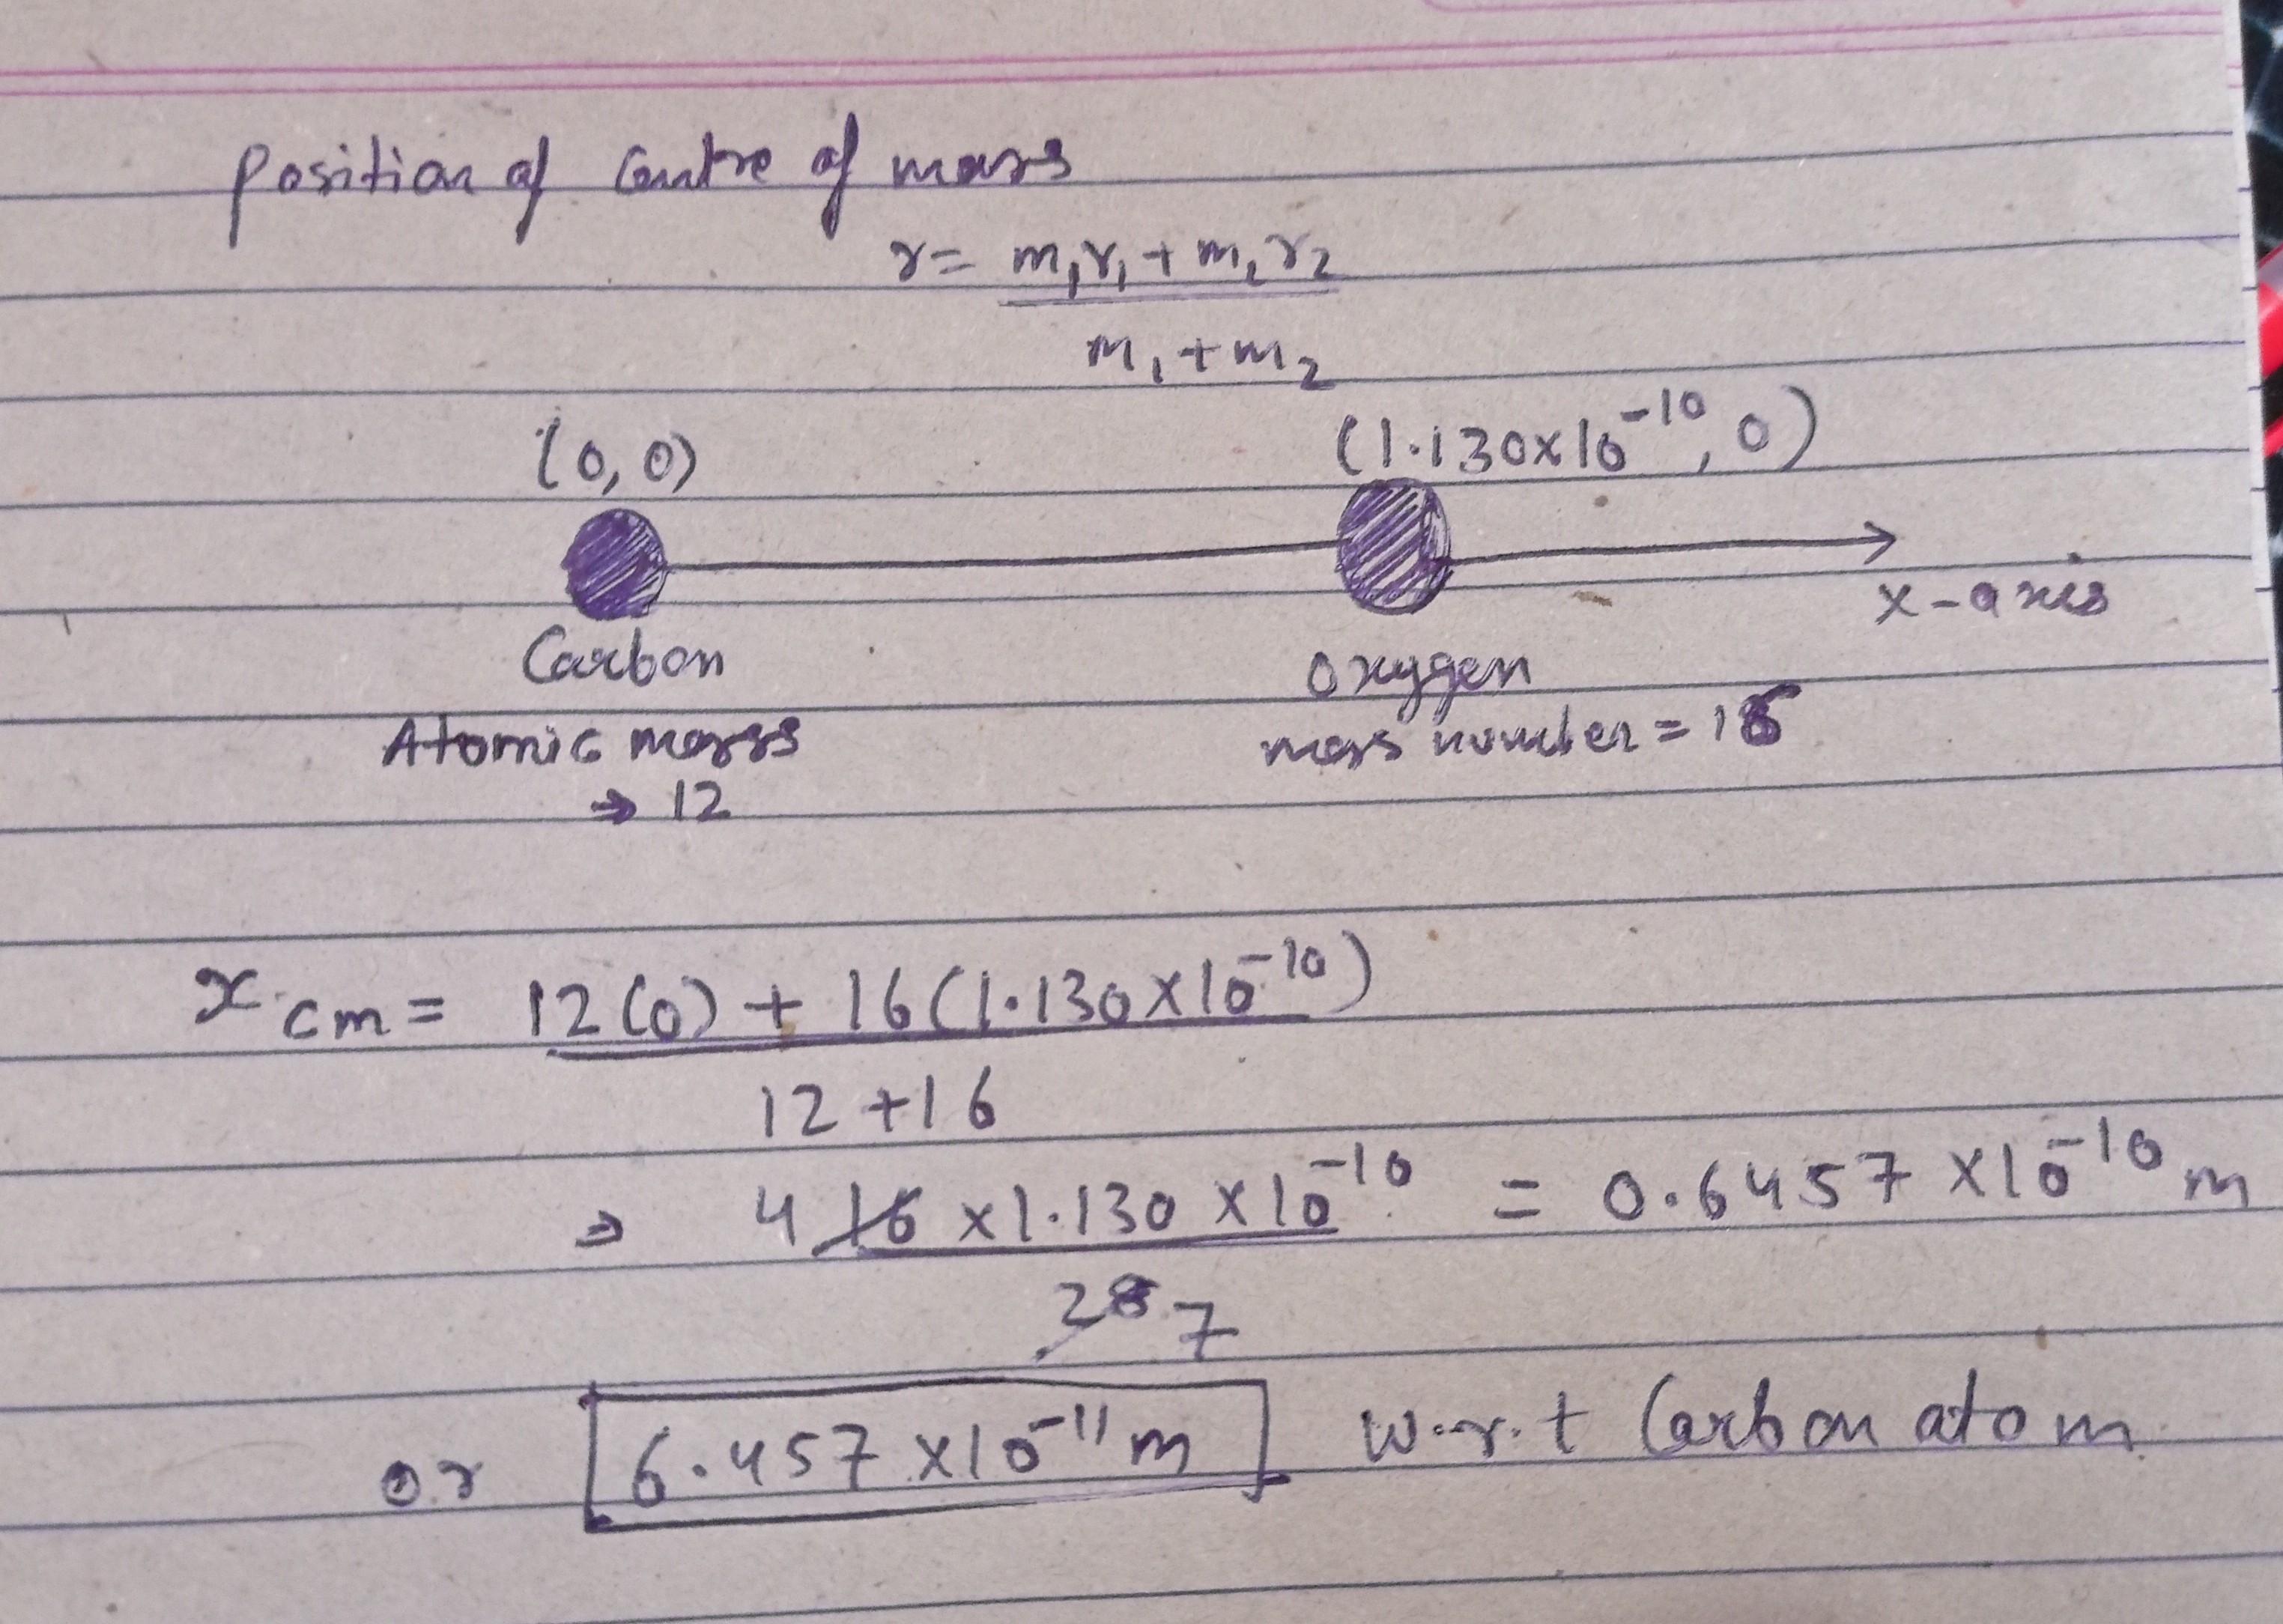 Position of Centre of mass
r = m₁r₁ + m₂r₂
m₁ + m₂
(0,0)
(1.130x10⁻¹⁰, 0)
x-axis
Carbon
Oxygen
Atomic mass
mass number = 16
→ 12
x cm = 12(0) + 16(1.130x10⁻¹⁰)
12 + 16
⇒ 4 16 x1.130 x10⁻¹⁰ = 0.6457 x10⁻¹⁰ m
28 7
or 6.457 x10⁻¹¹ m w.r.t Carbon atom